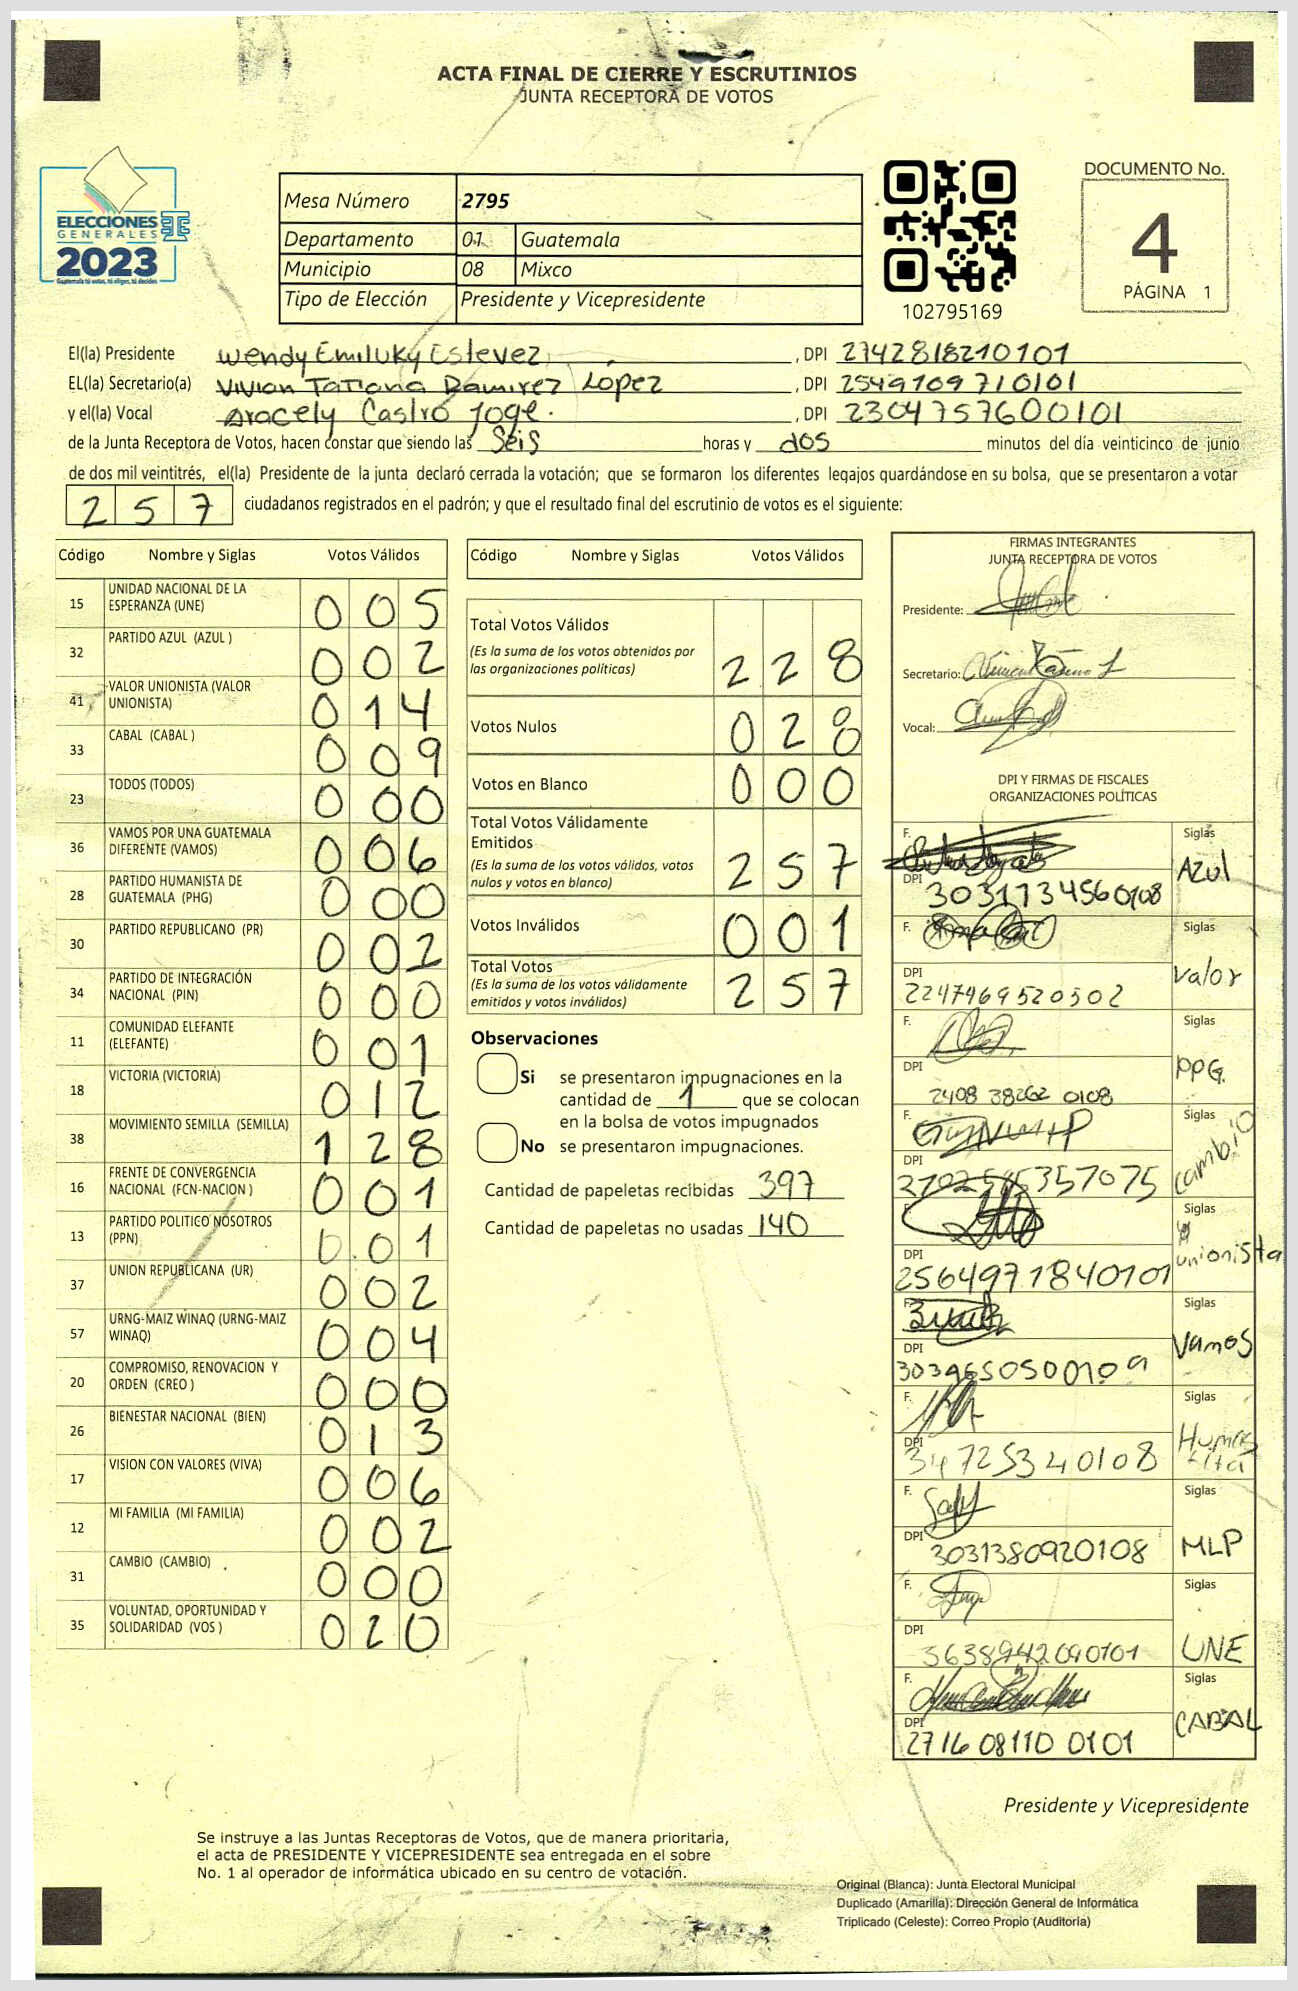 ACTA FINAL DE CIERRE Y ESCRUTINIOS
JUNTA RECEPTORA DE VOTOS
ELECCIONES
GENERALES
2023
Guatemala tú votas, tú eliges, tú decides
Mesa Número 2795
Departamento 01 Guatemala
Municipio 08 Mixco
Tipo de Elección Presidente y Vicepresidente
102795169
DOCUMENTO No.
4
PÁGINA 1
El(la) Presidente Wendy Emiluky Estevez, DPI 2742818210101
EL(la) Secretario(a) Vivian Tatiana Ramirez López, DPI 2549109710101
y el(la) Vocal Aracely Castro Joge., DPI 2304757600101
de la Junta Receptora de Votos, hacen constar que siendo las Seis horas y dos minutos del día veinticinco de junio
de dos mil veintitrés, el(la) Presidente de la junta declaró cerrada la votación; que se formaron los diferentes legajos quardándose en su bolsa, que se presentaron a votar
257 ciudadanos registrados en el padrón; y que el resultado final del escrutinio de votos es el siguiente:
Código Nombre y Siglas Votos Válidos
15 UNIDAD NACIONAL DE LA ESPERANZA (UNE) 005
32 PARTIDO AZUL (AZUL ) 002
41 VALOR UNIONISTA (VALOR UNIONISTA) 014
33 CABAL (CABAL ) 009
23 TODOS (TODOS) 000
36 VAMOS POR UNA GUATEMALA DIFERENTE (VAMOS) 006
28 PARTIDO HUMANISTA DE GUATEMALA (PHG) 000
30 PARTIDO REPUBLICANO (PR) 002
34 PARTIDO DE INTEGRACIÓN NACIONAL (PIN) 000
11 COMUNIDAD ELEFANTE (ELEFANTE) 001
18 VICTORIA (VICTORIA) 012
38 MOVIMIENTO SEMILLA (SEMILLA) 128
16 FRENTE DE CONVERGENCIA NACIONAL (FCN-NACION ) 001
13 PARTIDO POLITICO NOSOTROS (PPN) 001
37 UNION REPUBLICANA (UR) 002
57 URNG-MAIZ WINAQ (URNG-MAIZ WINAQ) 004
20 COMPROMISO, RENOVACION Y ORDEN (CREO ) 000
26 BIENESTAR NACIONAL (BIEN) 013
17 VISION CON VALORES (VIVA) 006
12 MI FAMILIA (MI FAMILIA) 002
31 CAMBIO (CAMBIO) 000
35 VOLUNTAD, OPORTUNIDAD Y SOLIDARIDAD (VOS ) 020
Código Nombre y Siglas Votos Válidos
Total Votos Válidos 228
(Es la suma de los votos obtenidos por
las organizaciones políticas)
Votos Nulos 028
Votos en Blanco 000
Total Votos Válidamente
Emitidos 257
(Es la suma de los votos válidos, votos
nulos y votos en blanco)
Votos Inválidos 001
Total Votos 257
(Es la suma de los votos válidamente
emitidos y votos inválidos)
Observaciones
Si se presentaron impugnaciones en la
cantidad de 1 que se colocan
en la bolsa de votos impugnados
No se presentaron impugnaciones.
Cantidad de papeletas recibidas 397
Cantidad de papeletas no usadas 140
FIRMAS INTEGRANTES
JUNTA RECEPTORA DE VOTOS
Presidente:
Secretario:
Vocal:
DPI Y FIRMAS DE FISCALES
ORGANIZACIONES POLÍTICAS
F. Siglas AZUl
DPI 3031734560108
F. Siglas Valor
DPI 2247469520502
F. Siglas PPG.
DPI 2408 38262 0108
F. Siglas cambio
DPI
F. Siglas unionista
DPI 2564971840101
F. Siglas Vamos
DPI
F. Siglas Humanista
DPI 34725340108
F. Siglas MLP
DPI 3031380920108
F. Siglas UNE
DPI 3638942090101
F. Siglas CABAL
DPI 2716 08110 0101
Presidente y Vicepresidente
Se instruye a las Juntas Receptoras de Votos, que de manera prioritaria,
el acta de PRESIDENTE Y VICEPRESIDENTE sea entregada en el sobre
No. 1 al operador de informática ubicado en su centro de votación.
Original (Blanca): Junta Electoral Municipal
Duplicado (Amarilla): Dirección General de Informática
Triplicado (Celeste): Correo Propio (Auditoría)